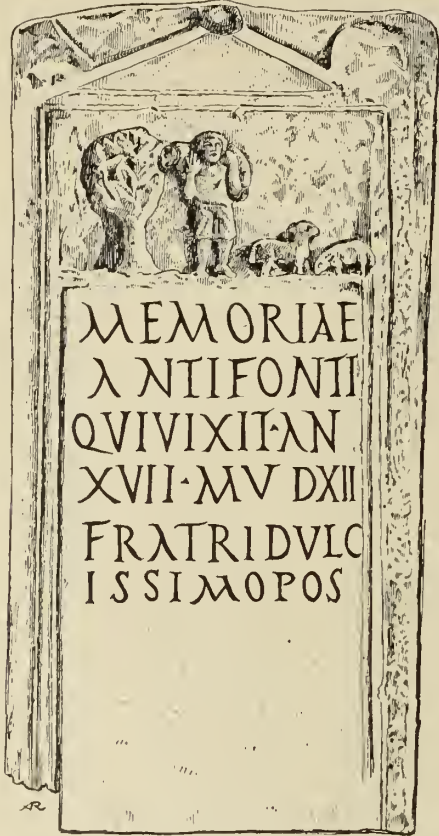 MEMORIAE
ANTIFONTI
QVIVIXIT·AN
XVII·MV DXII
FRATRIDVLC
ISSIMOPOS
AR